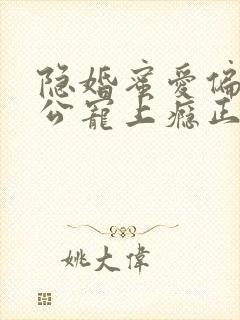 隐婚蜜爱偏
公宠上瘾正
姚大偉